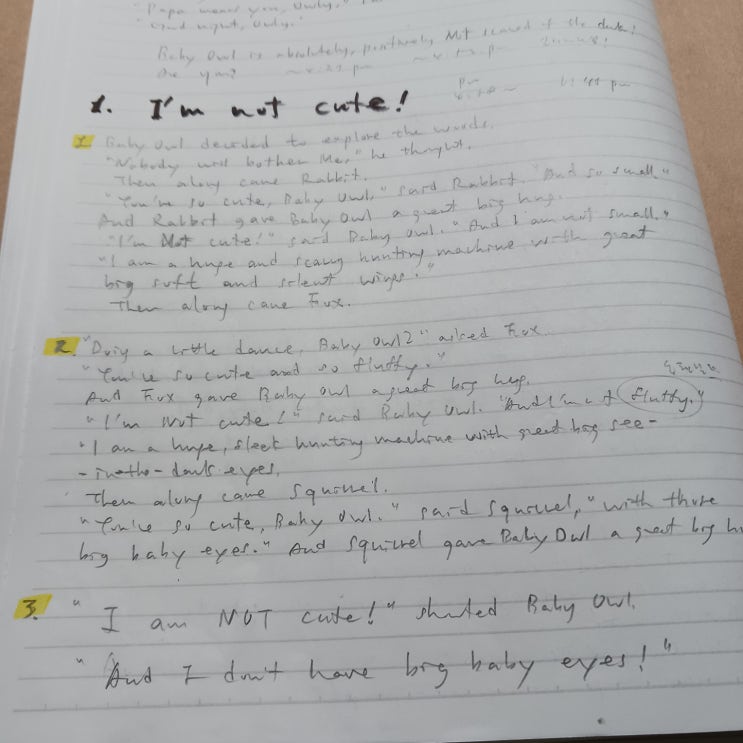 "Papa meant you, Owly,"
"Good night, Owly."
Baby Owl is absolutely, positively NOT scared of the dark!
Are you?
pm
pm
1. I'm not cute!
1 Baby Owl decided to explore the woods.
"Nobody will bother me," he thought.
Then along came Rabbit.
"You're so cute, Baby Owl," said Rabbit. "And so small."
And Rabbit gave Baby Owl a great big hug.
"I'm Not cute!" said Baby Owl. "And I am not small."
"I am a huge and scary hunting machine with great
big soft and silent wings."
Then along came Fox.
2. "Doing a little dance, Baby Owl?" asked Fox.
"You're so cute and so fluffy."
And Fox gave Baby Owl a great big hug.
"I'm not cute!" said Baby Owl. "And I'm not fluffy."
"I am a huge, sleek hunting machine with great big see-
-in-the-dark eyes.
Then along came Squirrel.
"You're so cute, Baby Owl." said Squirrel, "with those
big baby eyes." And Squirrel gave Baby Owl a great big hu
3. "I am NOT cute!" shouted Baby Owl.
"And I don't have big baby eyes!"